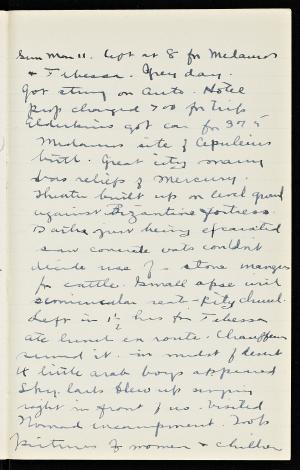 Sun Mar 11. Left at 8 for Madauros
& Tebessa. Grey day.
Got stung on auto. Hotel
prop charged 700 for trip
Elderkins got car for 375
Madauros site of Apuleius
birth. Great city many
bas reliefs of Mercury.
Theater built up on level ground
against Byzantine fortress.
Baths just being excavated
saw concrete vats couldn't
decide use of - stone mangers
for cattle. Small apse with
semicircular seat - city church.
Left in 1½ hrs for Tebessa
ate lunch en route. Chauffeur
in midst of desert
& little arab boys appeared
Sky larks flew up singing
right in front of us. Visited
Nomad encampment. Took
pictures of women & children